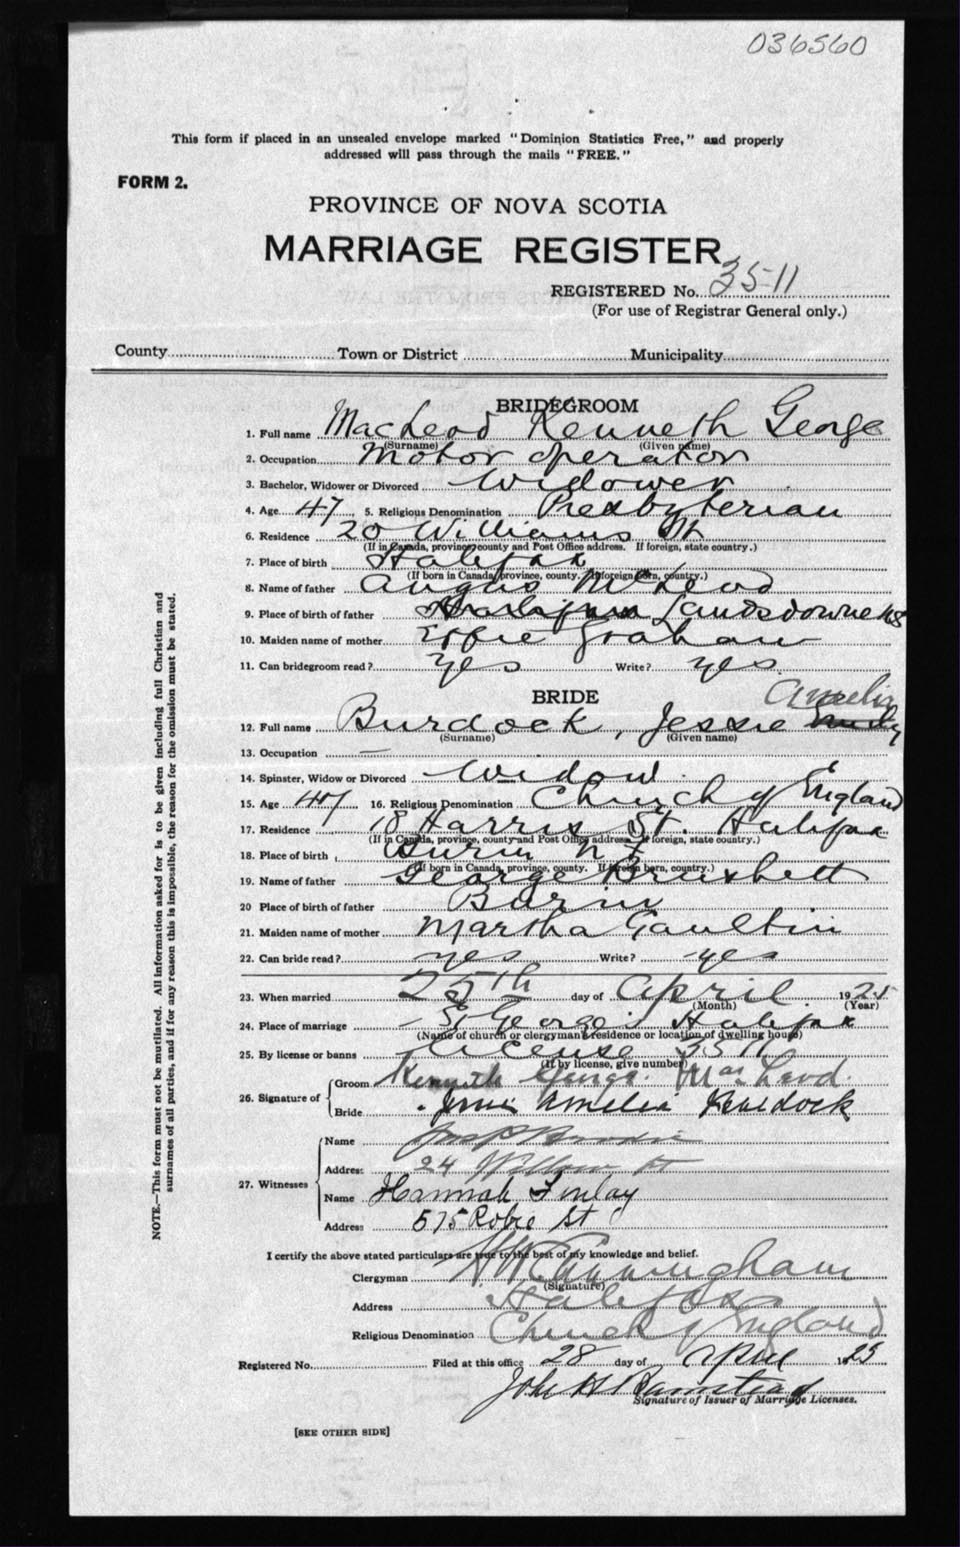 036560
This form if placed in an unsealed envelope marked "Dominion Statistics Free," and properly
addressed will pass through the mails "FREE."
FORM 2.
PROVINCE OF NOVA SCOTIA
MARRIAGE REGISTER
REGISTERED No. 3511
(For use of Registrar General only.)
County Town or District Municipality
BRIDEGROOM
1. Full name MacLeod Kenneth George
(Surname) (Given name)
2. Occupation Motor operator
3. Bachelor, Widower or Divorced Widower
4. Age 47 5. Religious Denomination Presbyterian
6. Residence 20 Williams St
(If in Canada, province, county and Post Office address. If foreign, state country.)
7. Place of birth Halifax
(If born in Canada, province, county. If foreign born, country.)
8. Name of father Angus McLeod
9. Place of birth of father Landsdowne NS
10. Maiden name of mother Graham
11. Can bridegroom read? Yes Write? yes
BRIDE
Amelia
12. Full name Burdock, Jessie
(Surname) (Given name)
13. Occupation —
14. Spinster, Widow or Divorced Widow
15. Age 47 16. Religious Denomination Church of England
17. Residence 18 Harris St. Halifax
(If in Canada, province, county and Post Office address. If foreign, state country.)
18. Place of birth Burin N F
(If born in Canada, province, county. If foreign born, country.)
19. Name of father George Brushett
20 Place of birth of father Burin
21. Maiden name of mother Martha
22. Can bride read? yes Write? yes
23. When married 25th day of April 1925
(Month) (Year)
24. Place of marriage St George's Halifax
(Name of church or clergyman's residence or location of dwelling house)
25. By license or banns License 3511
(If by license, give number)
26. Signature of Groom Kenneth George MacLeod.
Bride Jessie Amelia Burdock
27. Witnesses Name
Address 24 Willow St
Name Hannah Finlay
Address 575 Robie St
I certify the above stated particulars are true to the best of my knowledge and belief.
Clergyman Cunningham
(Signature)
Address Halifax
Religious Denomination Church of England
Registered No. Filed at this office 28 day of April 1925
John H
Signature of Issuer of Marriage Licenses.
[SEE OTHER SIDE]
NOTE.—This form must not be mutilated. All information asked for is to be given including full Christian and
surnames of all parties, and if for any reason this is impossible, the reason for the omission must be stated.